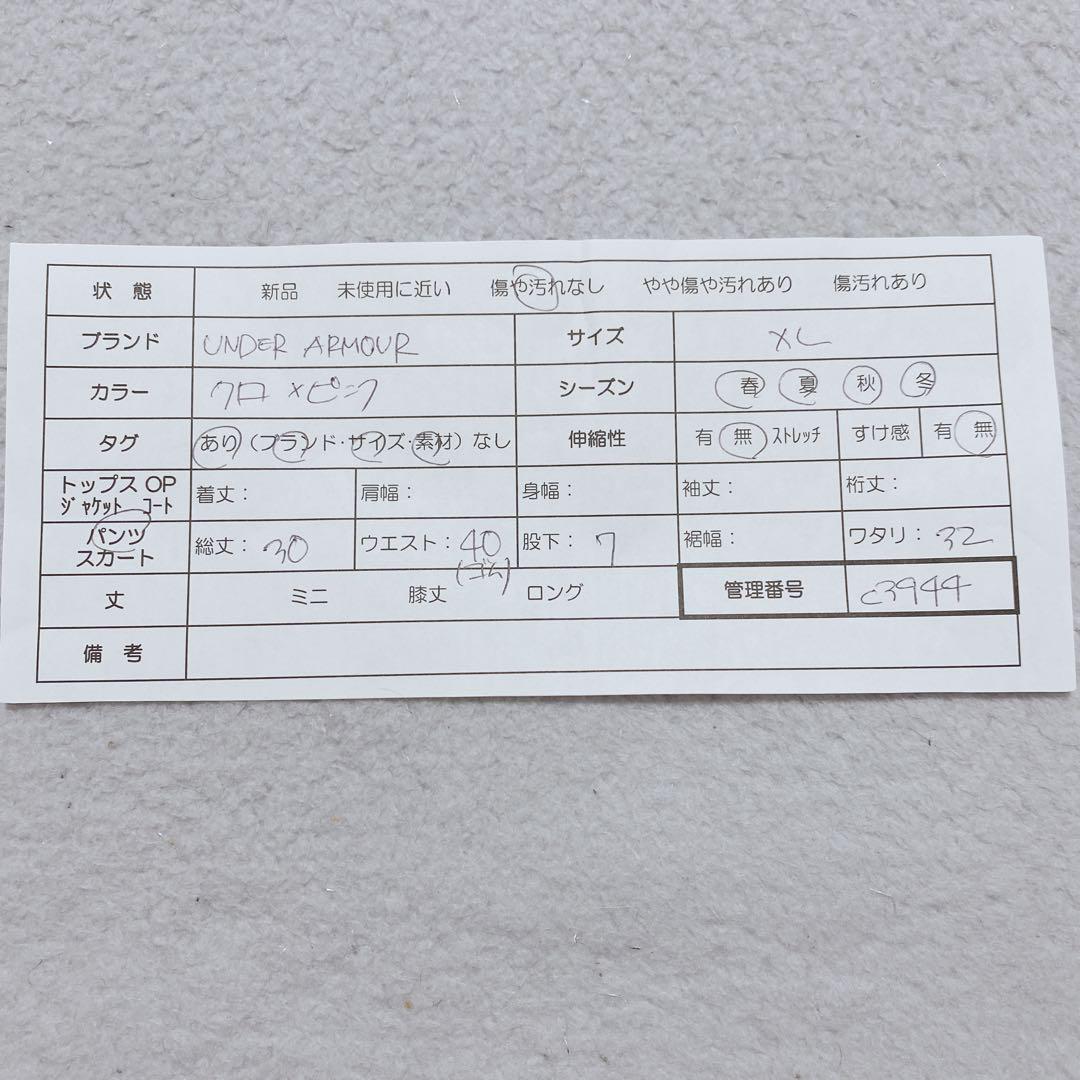 状態 新品 未使用に近い 傷や汚れなし やや傷や汚れあり 傷汚れあり
ブランド UNDER ARMOUR サイズ XL
カラー クロ×ピンク シーズン 春 夏 秋 冬
タグ あり(ブランド・サイズ・素材)なし 伸縮性 有 無 ｽﾄﾚｯﾁ すけ感 有 無
トップス OP
ｼﾞｬｹｯﾄ ｺｰﾄ 着丈： 肩幅： 身幅： 袖丈： 裄丈：
パンツ
スカート 総丈：30 ウエスト：40 股下：7 裾幅： ワタリ：32
(ゴム)
丈 ミニ 膝丈 ロング 管理番号 c3944
備考